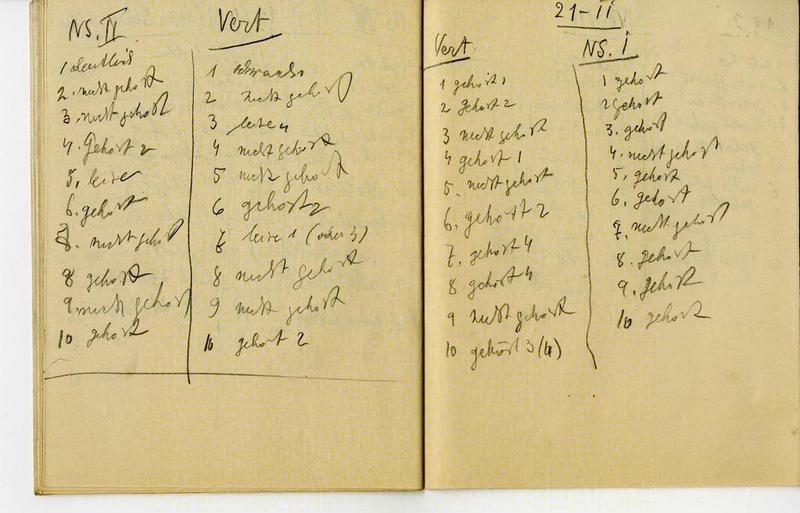 NS. II
1 deutlich
2. nicht gehört
3. nicht gehört
4. Gehört 2
5, leise
6. gehört
7. nicht gehört
8 gehört
9 nicht gehört
10 gehört
Vert
1 schwach
2 nicht gehört
3 leise 4
4 nicht gehört
5 nicht gehört
6 gehört 2
7 leise 1 (oder 3)
8 nicht gehört
9 nicht gehört
10 gehört 2
21-II
Vert.
1 gehört 1
2 gehört 2
3 nicht gehört
4 gehört 1
5. nicht gehört
6. gehört 2
7. gehört 4
8 gehört 4
9 nicht gehört
10 gehört 3 (4)
NS. I
1 gehört
2 gehört
3. gehört
4. nicht gehört
5. gehört
6. gehört
7. nicht gehört
8. gehört
9. gehört
10 gehört